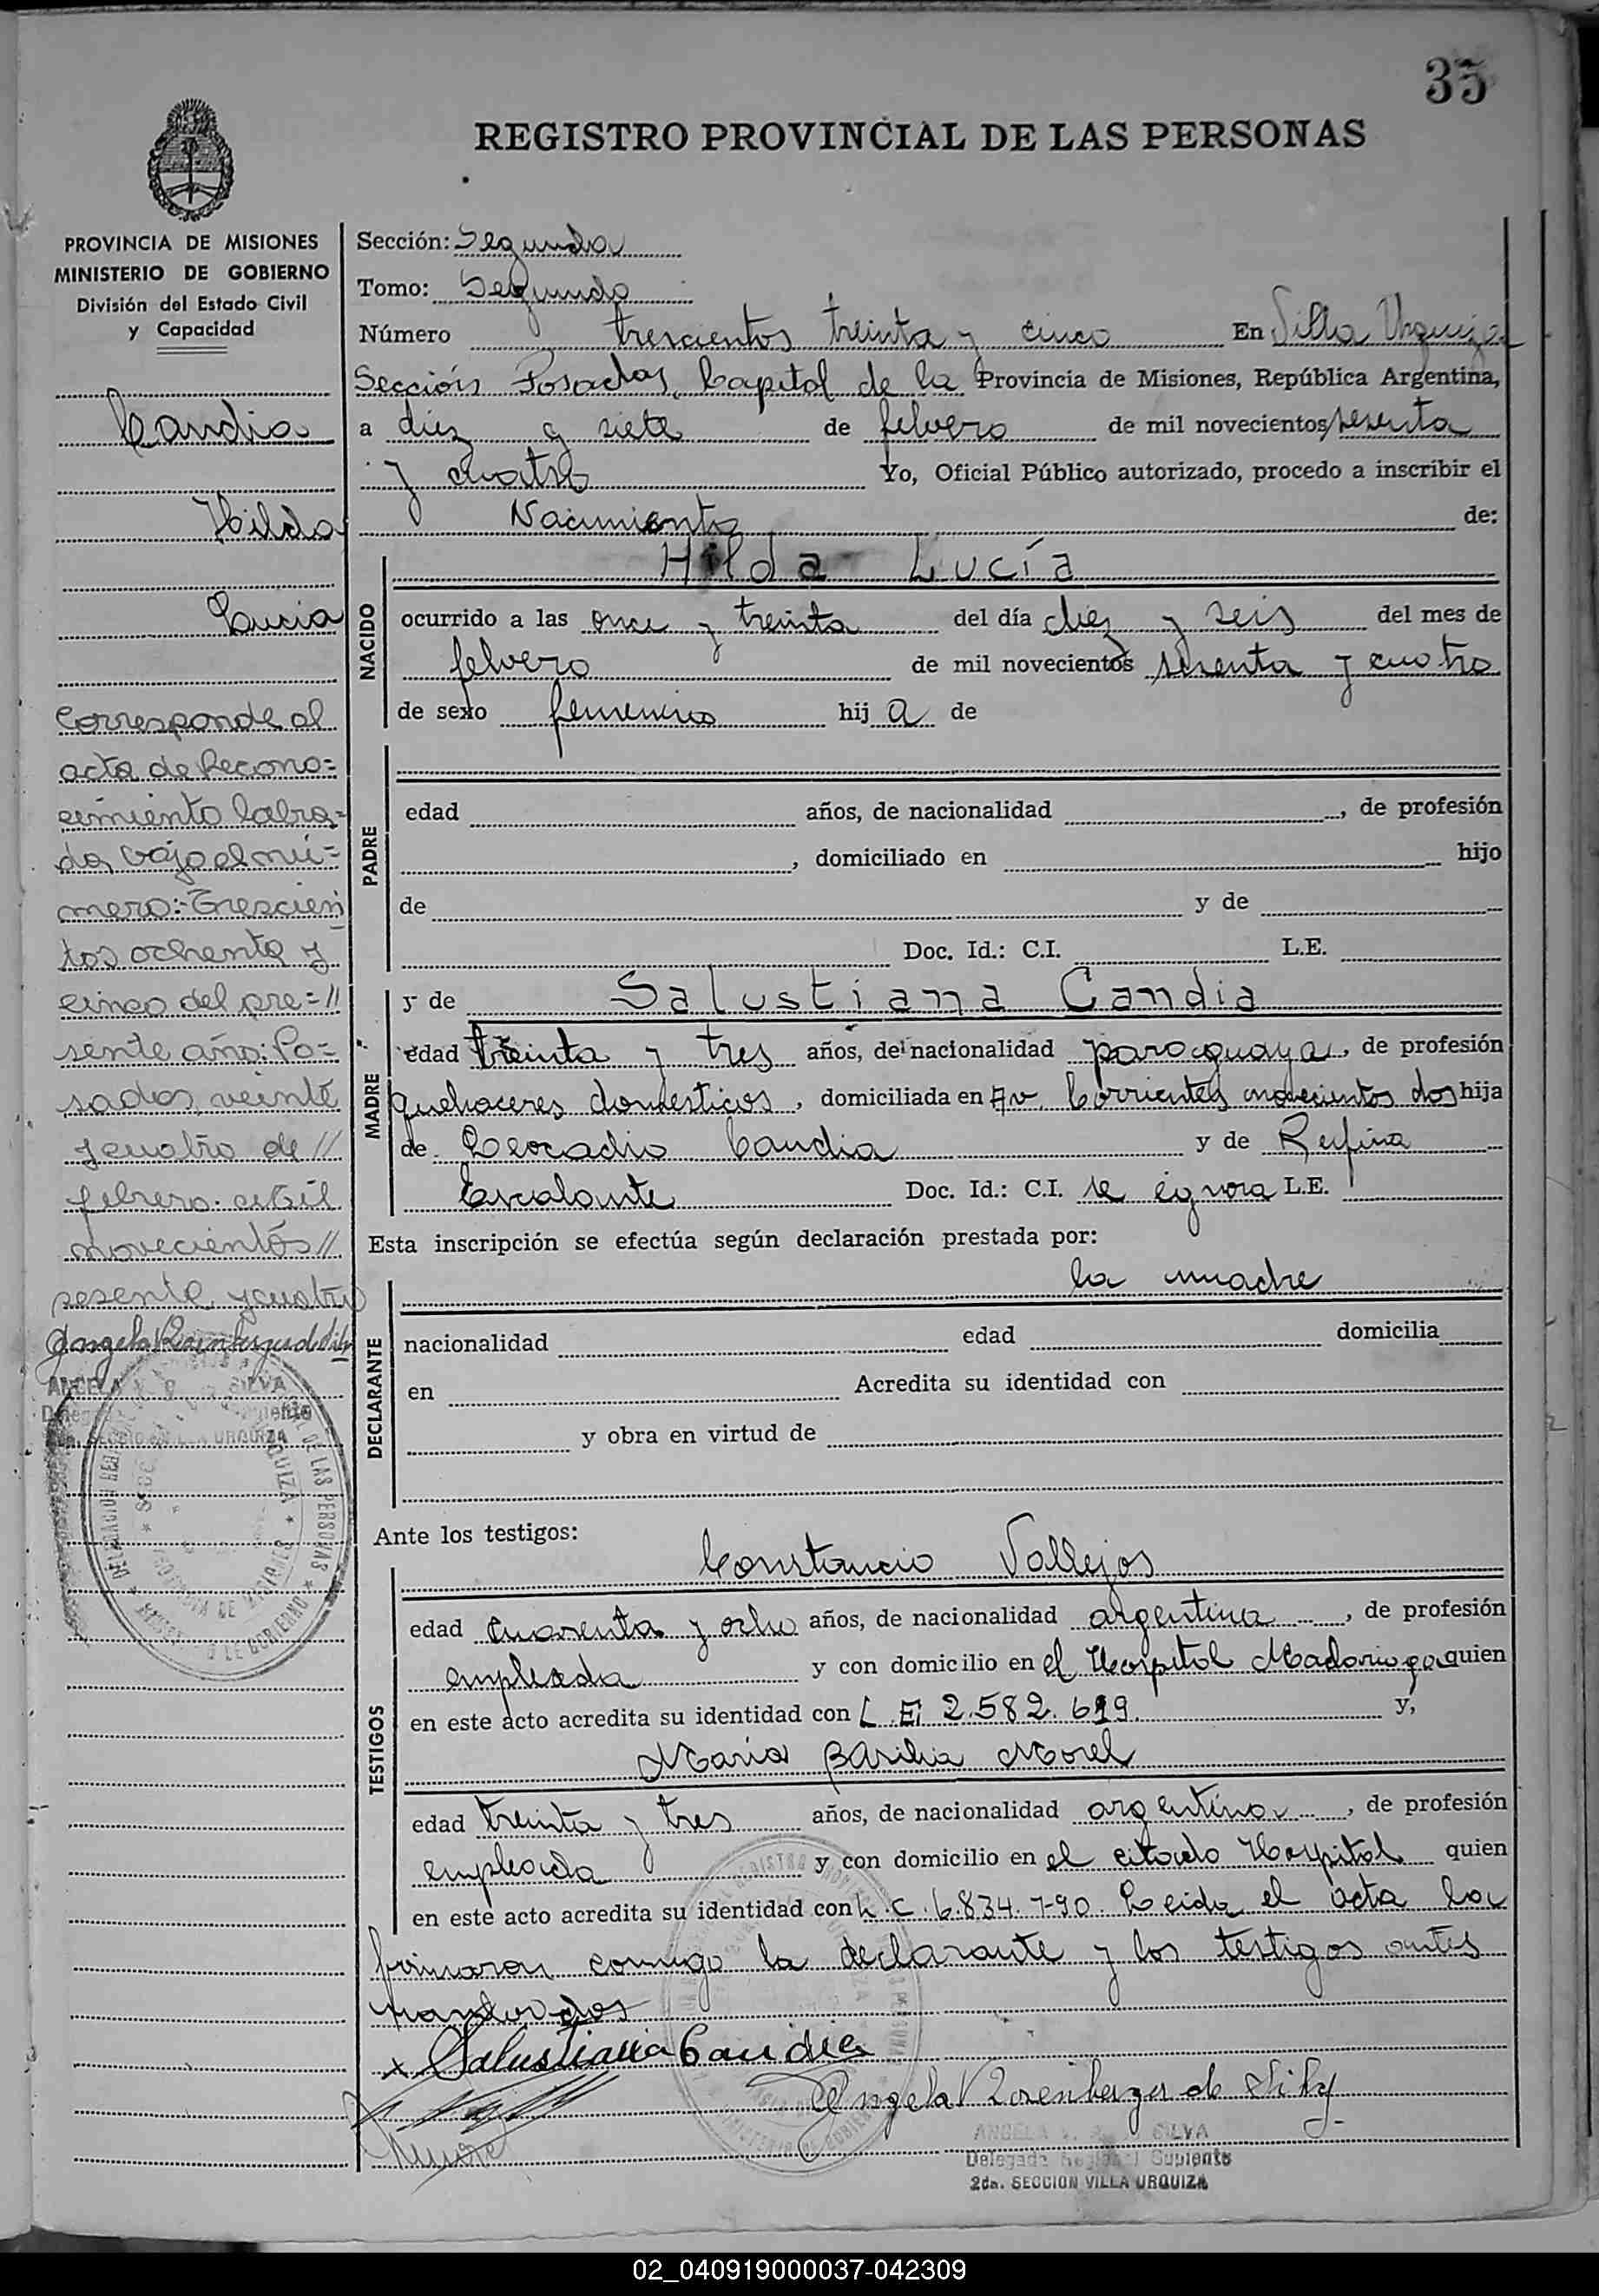 35
REGISTRO PROVINCIAL DE LAS PERSONAS
PROVINCIA DE MISIONES
MINISTERIO DE GOBIERNO
División del Estado Civil
y Capacidad
Candia
Hilda
Lucia
Corresponde al
acta de Recono=
cimiento labra=
da, bajo el nú=
mero:- Trescien
tos ochenta y
cinco del pre=//
sente año: Po=
sadas, veinte
y cuatro de //
febrero
novecientos //
sesenta y cuatro
ANGELA SILVA
SECCION VILLA URQUIZA
Sección: Segunda
Tomo: Segundo
Número trescientos treinta y cinco En Villa Urquiza
Sección Posadas, Capital de la Provincia de Misiones, República Argentina,
a diez y siete de febrero de mil novecientos sesenta
y cuatro Yo, Oficial Público autorizado, procedo a inscribir el
Nacimiento de:
NACIDO
Hilda Lucía
ocurrido a las once y treinta del día diez y seis del mes de
febrero de mil novecientos sesenta y cuatro
de sexo femenino hij a de
PADRE
edad años, de nacionalidad , de profesión
, domiciliado en hijo
de y de
Doc. Id.: C.I. L.E.
MADRE
y de Salustiana Candia
edad treinta y tres años, de nacionalidad paraguaya, de profesión
quehaceres domesticos, domiciliada en Av. Corrientes novecientos dos hija
de Leocadio Candia y de Rufina
Escalante Doc. Id.: C.I. se ignora L.E.
Esta inscripción se efectúa según declaración prestada por:
la madre
DECLARANTE
nacionalidad edad domicilia
en Acredita su identidad con
y obra en virtud de
Ante los testigos:
TESTIGOS
Constancio Vallejos
edad cuarenta y ocho años, de nacionalidad argentina, de profesión
empleada y con domicilio en el Hospital Madariaga quien
en este acto acredita su identidad con L.E. 2.582.619. y,
Maria Basilia Morel
edad treinta y tres años, de nacionalidad argentina, de profesión
empleada y con domicilio en el citado Hospital quien
en este acto acredita su identidad con L.C. 6.834.790. Leida el acta la
firmaron conmigo la declarante y los testigos antes
nombrados
x Salustiana Candia
Angela V Rosenberger de Silva
ANGELA V. SILVA
Delegada Suplente
2da. SECCION VILLA URQUIZA
02_040919000037-042309